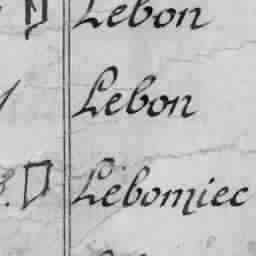 Lebon
Lebon
Lebomiec